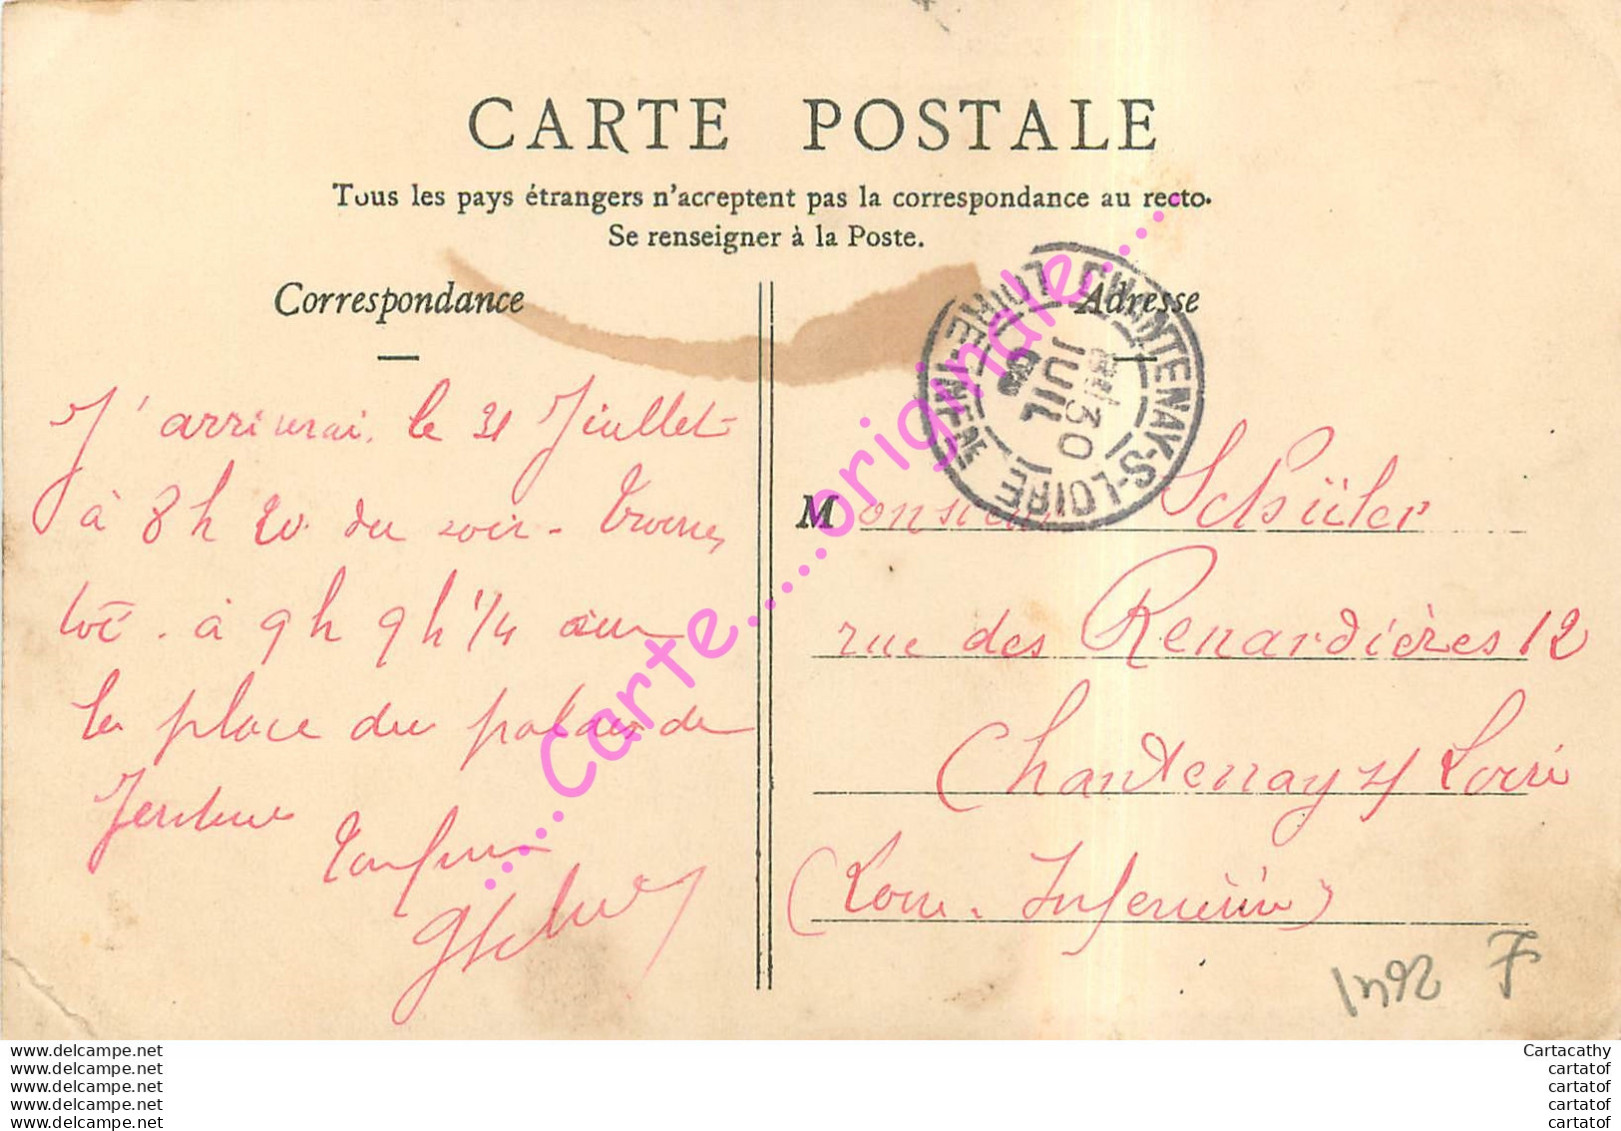 CARTE POSTALE
Tous les pays étrangers n'acceptent pas la correspondance au recto.
Se renseigner à la Poste.
Correspondance
Adresse
CHANTENAY-S-LOIRE
LOIRE-INFRE
30
JUIL
J'arriverai le 31 Juillet
à 8h 20 du soir - Trouve
toi à 9h 9h 1/4 sur
la place du palais de
Justice
Monsieur Schüler
rue des Renardières 12
Chantenay s/ Loire
(Loire-Inférieure)
F
.....Carte.....originale.....
www.delcampe.net
www.delcampe.net
www.delcampe.net
www.delcampe.net
www.delcampe.net
Cartacathy
cartatof
cartatof
cartatof
cartatof